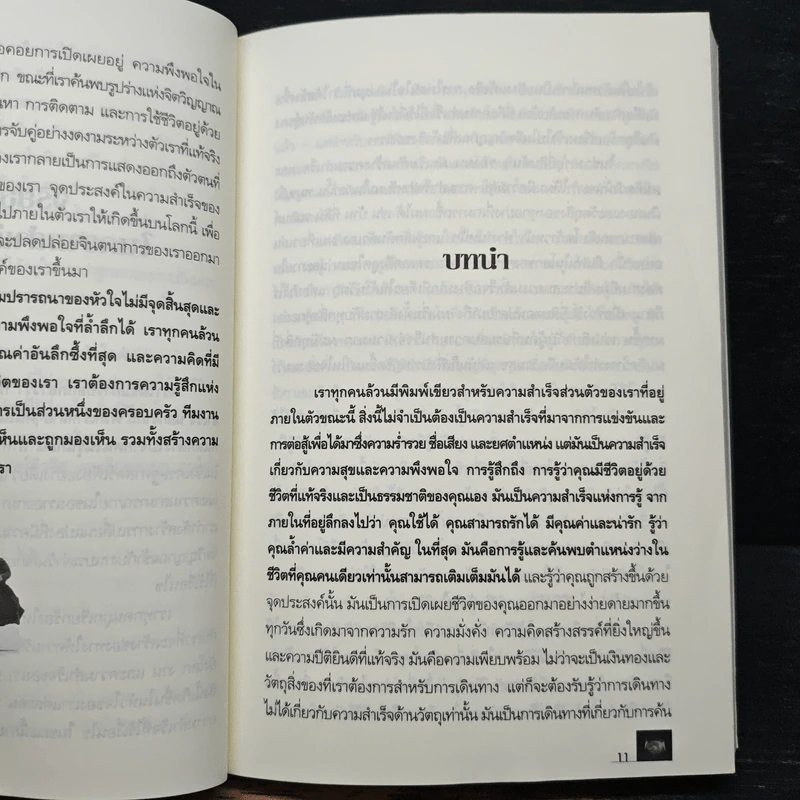 อคอยการเปิดเผยอยู่ ความพึงพอใจใน
ัก ขณะที่เราค้นพบรูปร่างแห่งจิตวิญญาณ
นหา การติดตาม และการใช้ชีวิตอยู่ด้วย
รจับคู่อย่างงดงามระหว่างตัวเราที่แท้จริง
องเรากลายเป็นการแสดงออกถึงตัวตนที่
ของเรา จุดประสงค์ในความสำเร็จของ
ไปภายในตัวเราให้เกิดขึ้นบนโลกนี้ เพื่อ
จะปลดปล่อยจินตนาการของเราออกมา
ค์ของเราขึ้นมา
มปรารถนาของหัวใจไม่มีจุดสิ้นสุดและ
วามพึงพอใจที่ล้ำลึกได้ เราทุกคนล้วน
ุณค่าอันลึกซึ้งที่สุด และความคิดที่มี
วิตของเรา เราต้องการความรู้สึกแห่ง
ารเป็นส่วนหนึ่งของครอบครัว ทีมงาน
ห็นและถูกมองเห็น รวมทั้งสร้างความ
รา
บทนำ
เราทุกคนล้วนมีพิมพ์เขียวสำหรับความสำเร็จส่วนตัวของเราที่อยู่
ภายในตัวขณะนี้ สิ่งนี้ไม่จำเป็นต้องเป็นความสำเร็จที่มาจากการแข่งขันและ
การต่อสู้เพื่อได้มาซึ่งความร่ำรวย ชื่อเสียง และยศตำแหน่ง แต่มันเป็นความสำเร็จ
เกี่ยวกับความสุขและความพึงพอใจ การรู้สึกถึง การรู้ว่าคุณมีชีวิตอยู่ด้วย
ชีวิตที่แท้จริงและเป็นธรรมชาติของคุณเอง มันเป็นความสำเร็จแห่งการรู้ จาก
ภายในที่อยู่ลึกลงไปว่า คุณใช้ได้ คุณสามารถรักได้ มีคุณค่าและน่ารัก รู้ว่า
คุณล้ำค่าและมีความสำคัญ ในที่สุด มันคือการรู้และค้นพบตำแหน่งว่างใน
ชีวิตที่คุณคนเดียวเท่านั้นสามารถเติมเต็มมันได้ และรู้ว่าคุณถูกสร้างขึ้นด้วย
จุดประสงค์นั้น มันเป็นการเปิดเผยชีวิตของคุณออกมาอย่างง่ายดายมากขึ้น
ทุกวันซึ่งเกิดมาจากความรัก ความมั่งคั่ง ความคิดสร้างสรรค์ที่ยิ่งใหญ่ขึ้น
และความปีติยินดีที่แท้จริง มันคือความเพียบพร้อม ไม่ว่าจะเป็นเงินทองและ
วัตถุสิ่งของที่เราต้องการสำหรับการเดินทาง แต่ก็จะต้องรับรู้ว่าการเดินทาง
ไม่ได้เกี่ยวกับความสำเร็จด้านวัตถุเท่านั้น มันเป็นการเดินทางที่เกี่ยวกับการค้น
11